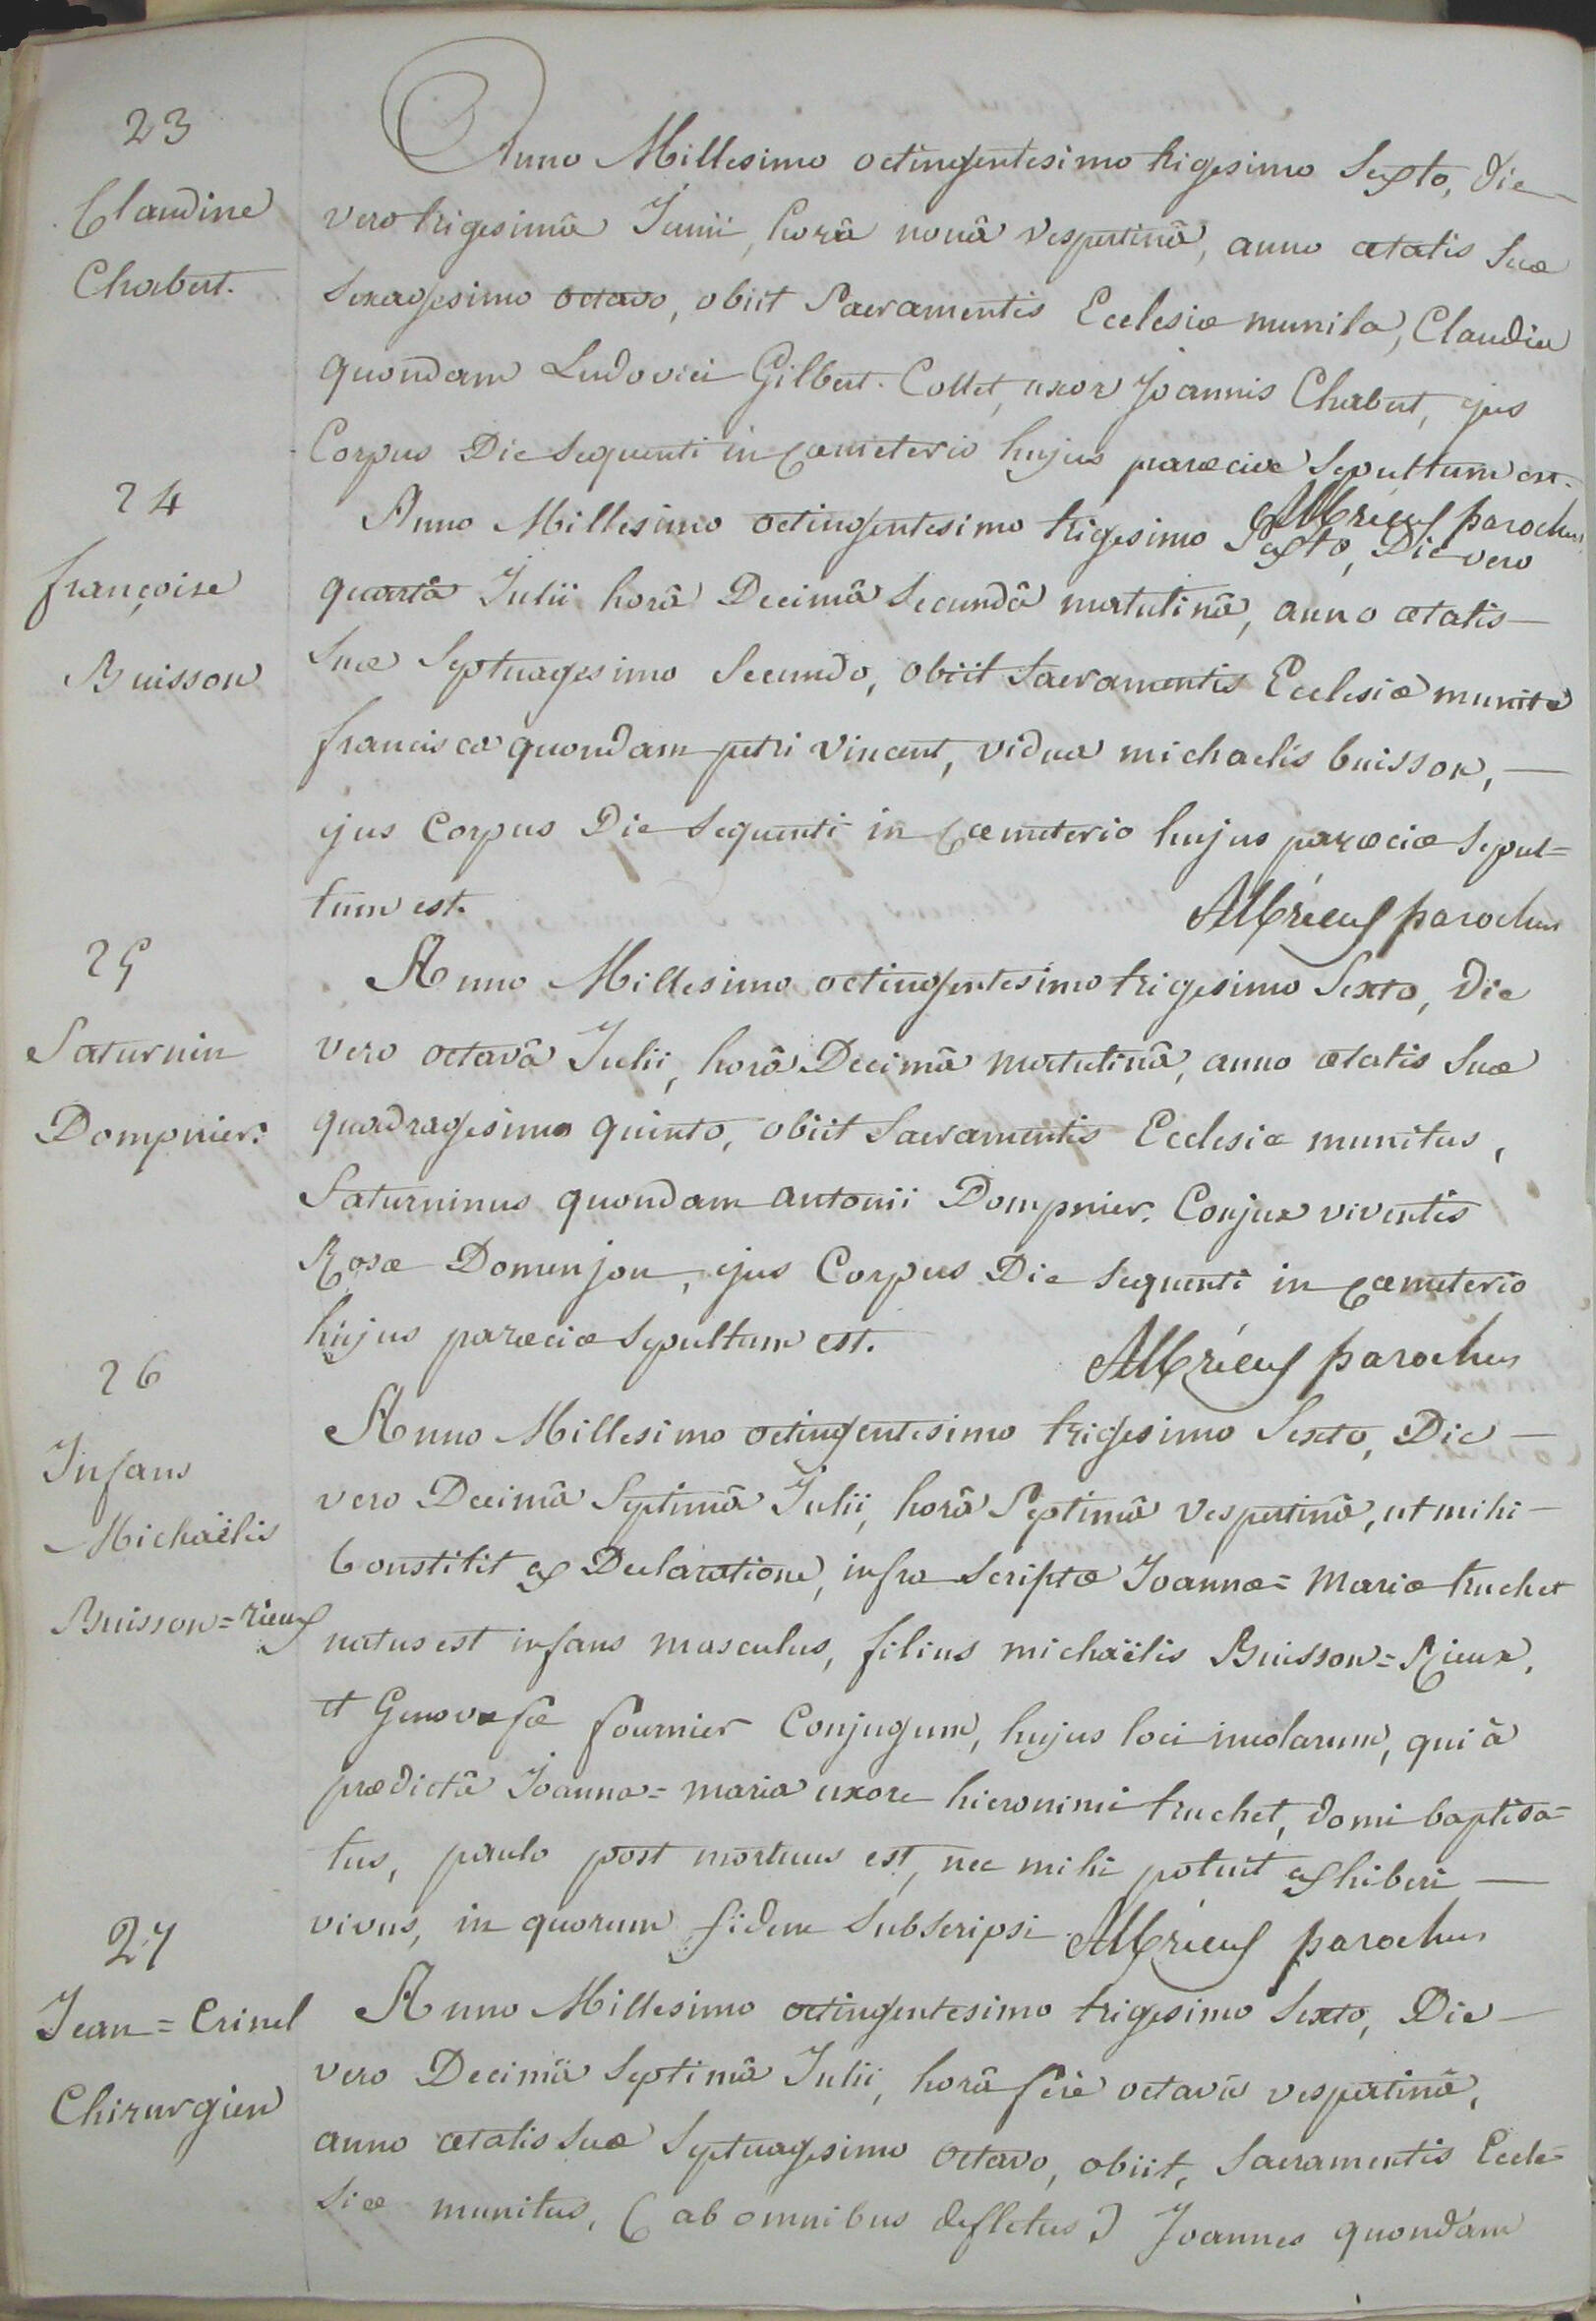 23
Claudine
Chabert.
Anno Millesimo octingentesimo trigesimo Sexto, die
vero trigesimâ Junii, horâ nonâ vespertinâ, anno ætatis Suæ
Sexagesimo octavo, obiit Sacramentis Ecclesiæ munita, Claudia
quondam Ludovici Gilbert-Collet, uxor Joannis Chabert, ejus
Corpus Die Sequenti in Cæmeterio hujus parœciæ Sepultum est.
parochus
24
françoise
Buisson
Anno Millesimo octingentesimo trigesimo Sexto, Die vero
quarta Julii horâ Decimâ Secundâ matutinâ, anno ætatis
Suæ Septuagesimo Secundo, obiit Sacramentis Ecclesiæ munita
francisca quondam petri Vincent, vidua michaelis buisson,
ejus Corpus Die Sequenti in Cæmeterio hujus parœciæ Sepul=
tum est.
parochus
25
Saturnin
Dompnier.
Anno Millesimo octingentesimo trigesimo Sexto, Die
vero octavâ Julii, horâ Decimâ matutinâ, anno ætatis Suæ
quadragesimo quinto, obiit Sacramentis Ecclesiæ munitus,
Saturninus quondam antonii Dompnier. Conjux viventis
Rosæ Domenjon, ejus Corpus Die Sequenti in Cæmeterio
hujus parœciæ Sepultum est.
parochus
26
Infans
Michaëlis
Buisson=rieux
Anno Millesimo octingentesimo trigesimo Sexto, Die
vero Decimâ Septimâ Julii, horâ Septimâ Vespertinâ, ut mihi
Constitit ex Declaratione, infra Scriptæ Joannæ=Mariæ truchet
natus est infans masculus, filius michaëlis Buisson=Rieux,
et Genovefæ fournier Conjugum, hujus loci incolarum, qui à
prædictâ Joanna=maria uxore hieronimi truchet, domi baptisa=
tus, paulo post mortuus est, nec mihi potuit exhiberi
vivus, in quorum fidem Subscripsi
parochus
27
Jean=Crinel
Chirurgien
Anno Millesimo octingentesimo trigesimo Sexto, Die
vero Decimâ Septimâ Julii, horâ ferè octavâ vespertinâ,
anno ætatis Suæ Septuagesimo octavo, obiit, Sacramentis Eccle=
siæ munitus, (ab omnibus defletus) Joannes quondam